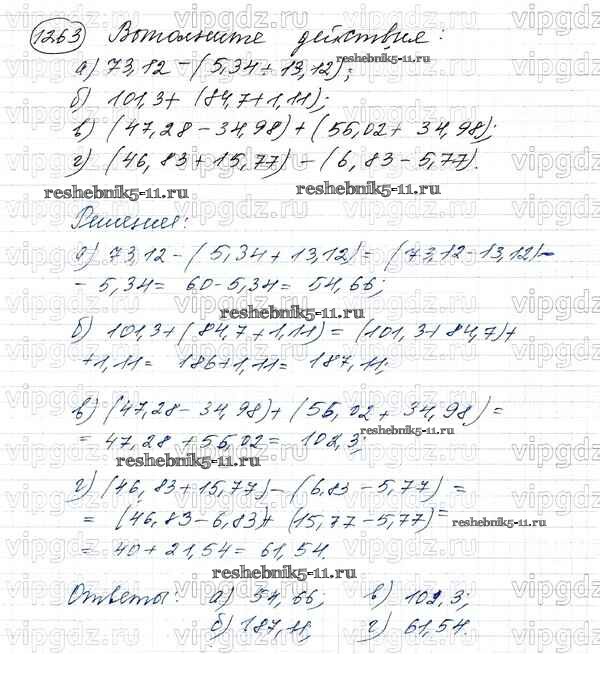 1263 Выполните действия:
а) 73,12 - (5,34 + 13,12);
reshebnik5-11.ru
б) 101,3 + (84,7 + 1,11);
в) (47,28 - 34,98) + (55,02 + 34,98);
г) (46,83 + 15,77) - (6,83 - 5,77).
reshebnik5-11.ru reshebnik5-11.ru
Решение:
а) 73,12 - (5,34 + 13,12) = (73,12 - 13,12) -
- 5,34 = 60 - 5,34 = 54,66;
reshebnik5-11.ru
б) 101,3 + (84,7 + 1,11) = (101,3 + 84,7) +
+ 1,11 = 186 + 1,11 = 187,11;
в) (47,28 - 34,98) + (55,02 + 34,98) =
= 47,28 + 55,02 = 102,3;
reshebnik5-11.ru
reshebnik5-11.ru
г) (46,83 + 15,77) - (6,83 - 5,77) =
= (46,83 - 6,83) + (15,77 - 5,77) =
reshebnik5-11.ru
= 40 + 21,54 = 61,54.
reshebnik5-11.ru
Ответы: а) 54,66; в) 102,3;
б) 187,11; г) 61,54.